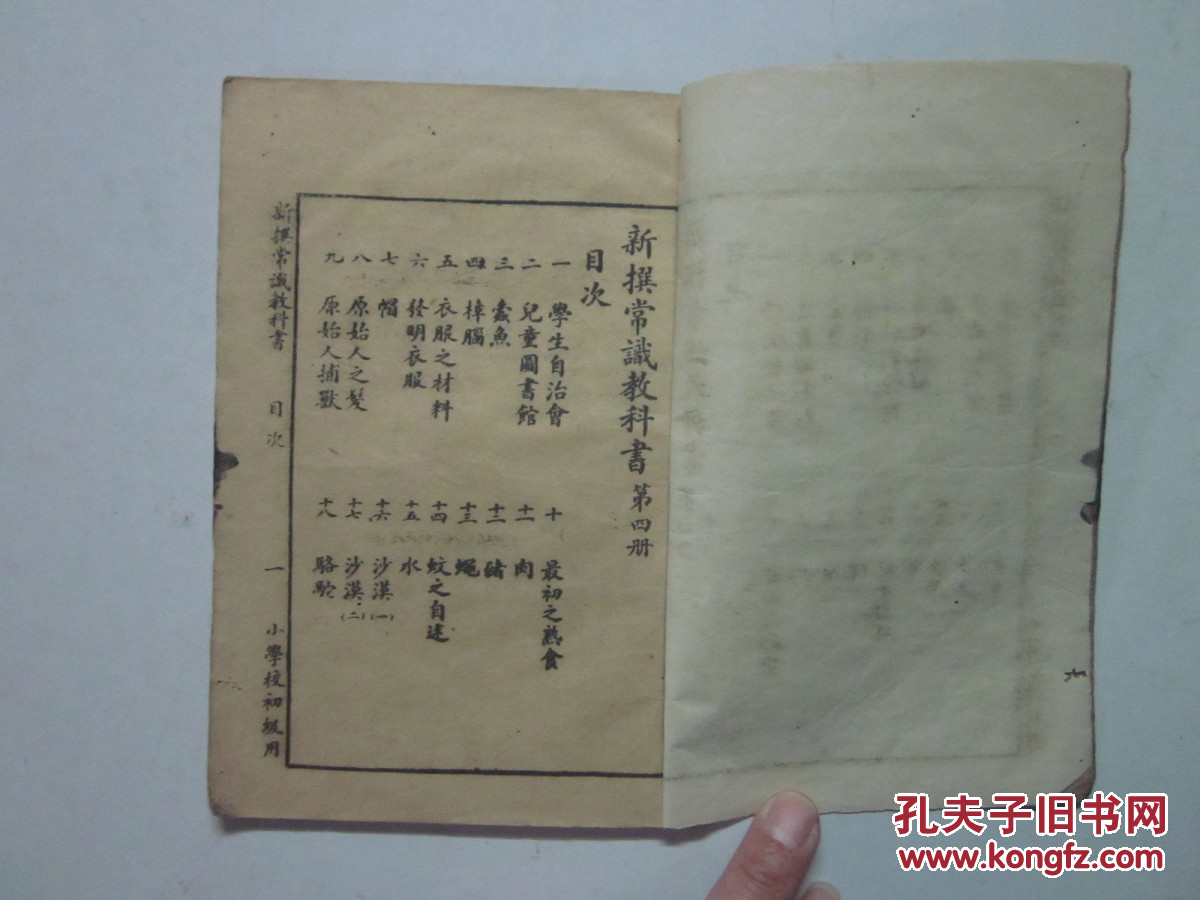 新撰常識教科書 第四册
目次
一 學生自治會
二 兒童圖書館
三 蠹魚
四 樟腦
五 衣服之材料
六 發明衣服
七 帽
八 原始人之髮
九 原始人捕獸
十 最初之熟食
十一 肉
十二 豬
十三 蠅
十四 蚊之自述
十五 水
十六 沙漠(一)
十七 沙漠(二)
十八 駱駝
新撰常識教科書 目次 一 小學校初級用
孔夫子旧书网
www.kongfz.com